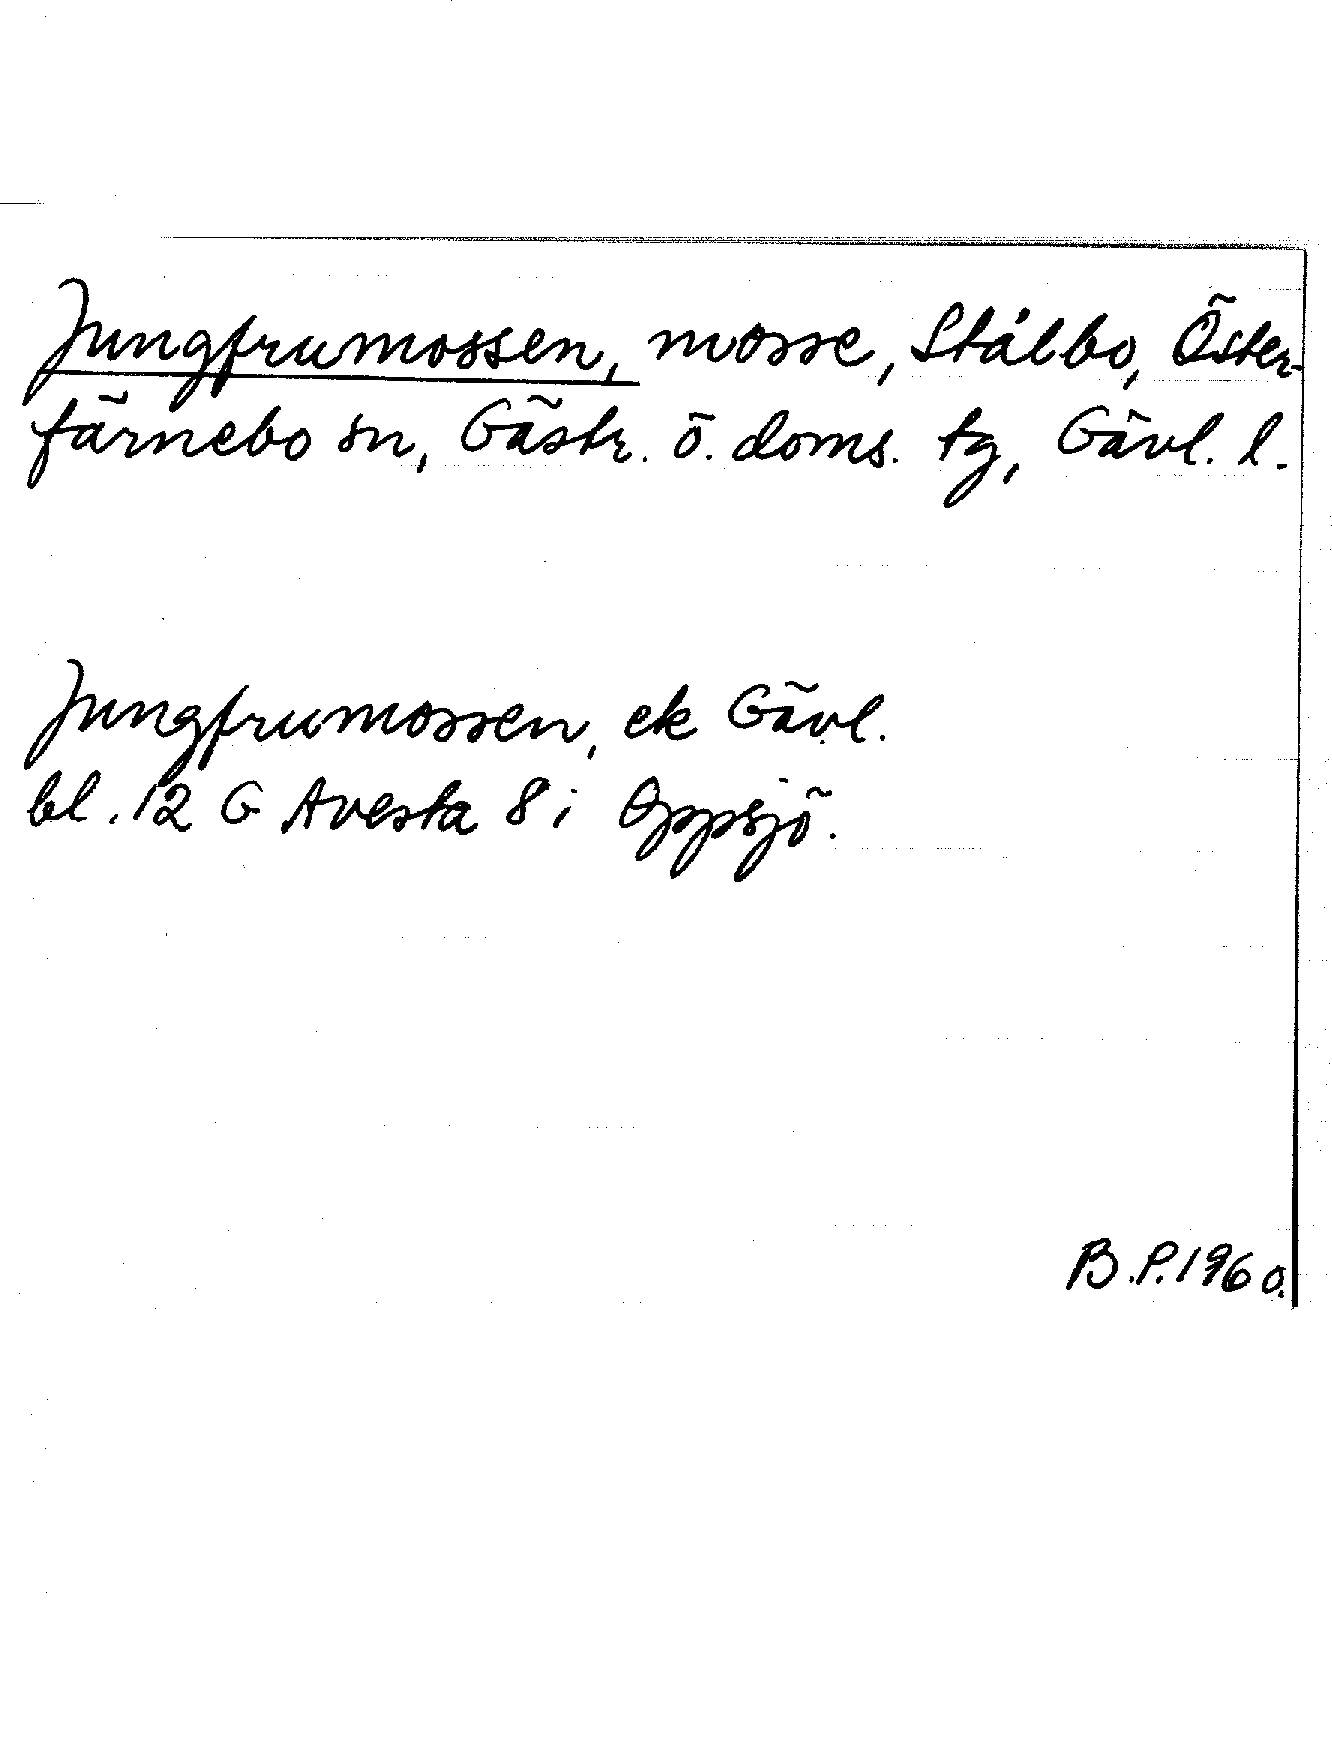 Jungfrumossen, mosse, Stålbo, Öster-
färnebo sn, Gästr. ö. doms. tg, Gävl. l.
Jungfrumossen, ek Gävl.
bl. 12 G Avesta 8 i Oppsjö.
B.P. 1960.